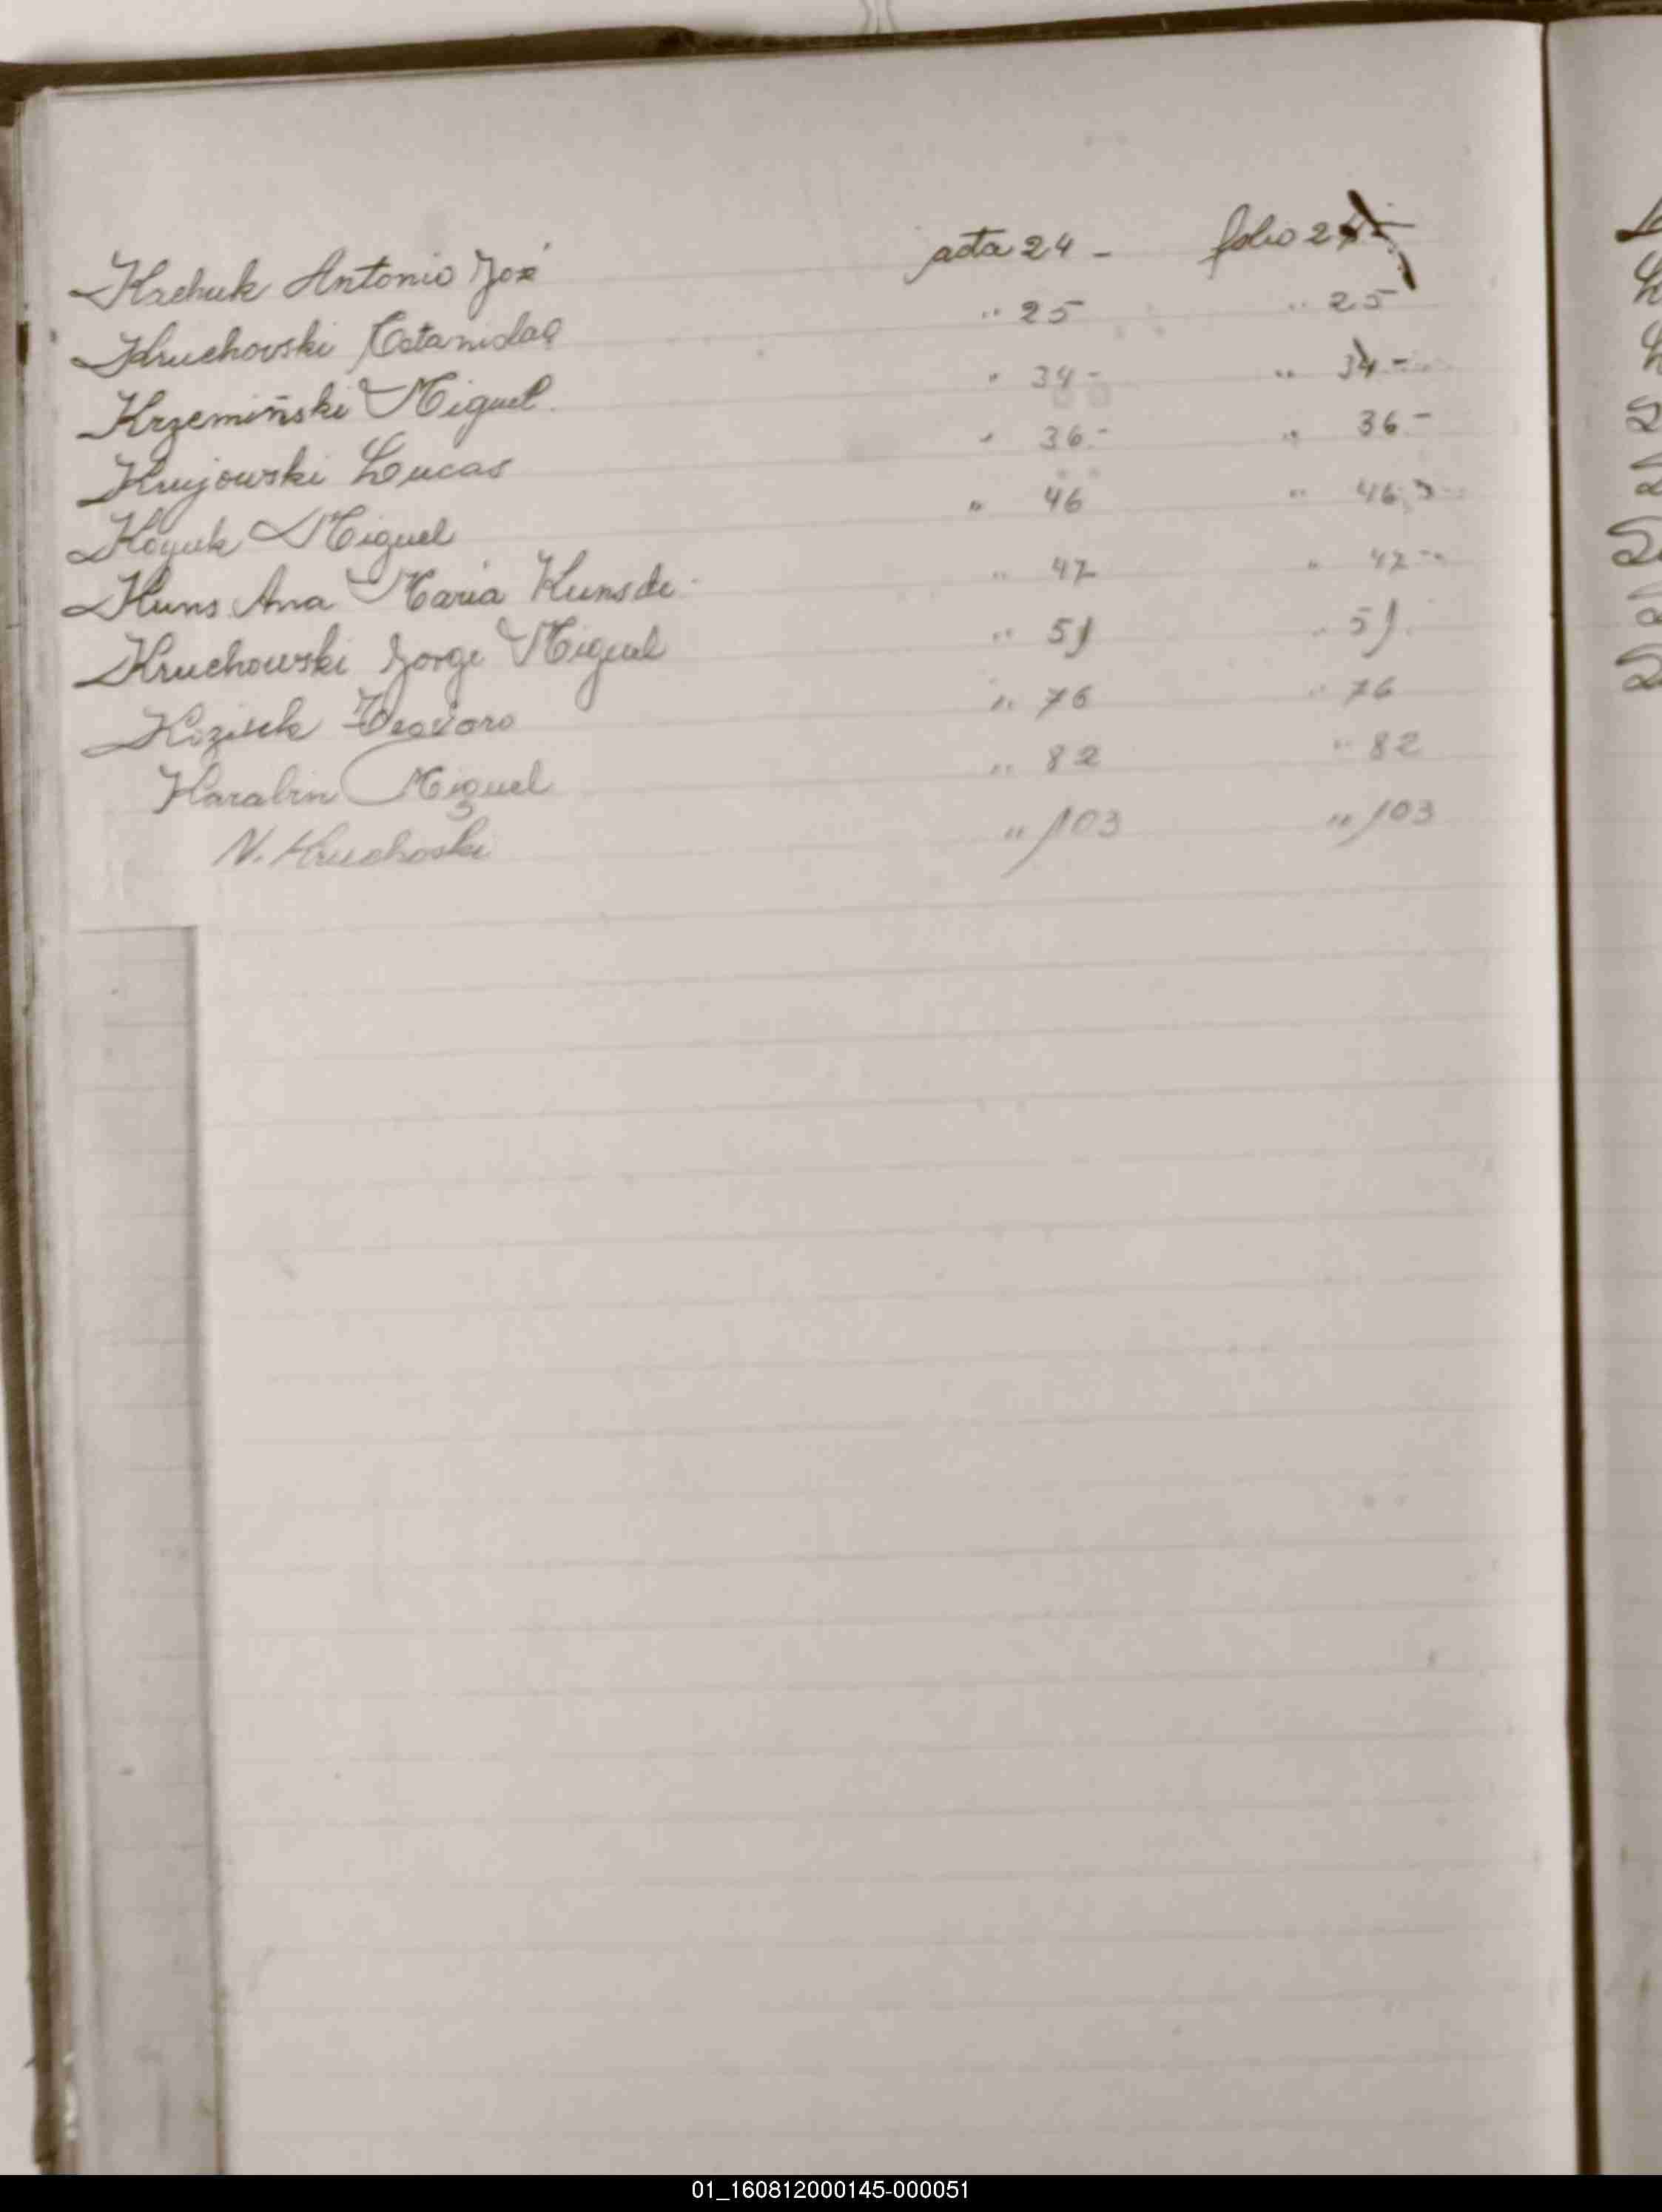 Krchuk Antonio José acta 24 - folio 24
Kruchovski Estanislao " 25 " 25
Krzemiñski Miguel. " 34 - " 34 -
Krujowski Lucas " 36 - " 36 -
Koyuk Miguel " 46 " 46
Kuns Ana Maria Kuns de - " 47 " 47
Kruchowski Jorge Miguel " 51 " 51
Kozisek Teodoro " 76 " 76
Karabin Miguel " 82 " 82
N. Kruchoski " 103 " 103
01_160812000145-000051